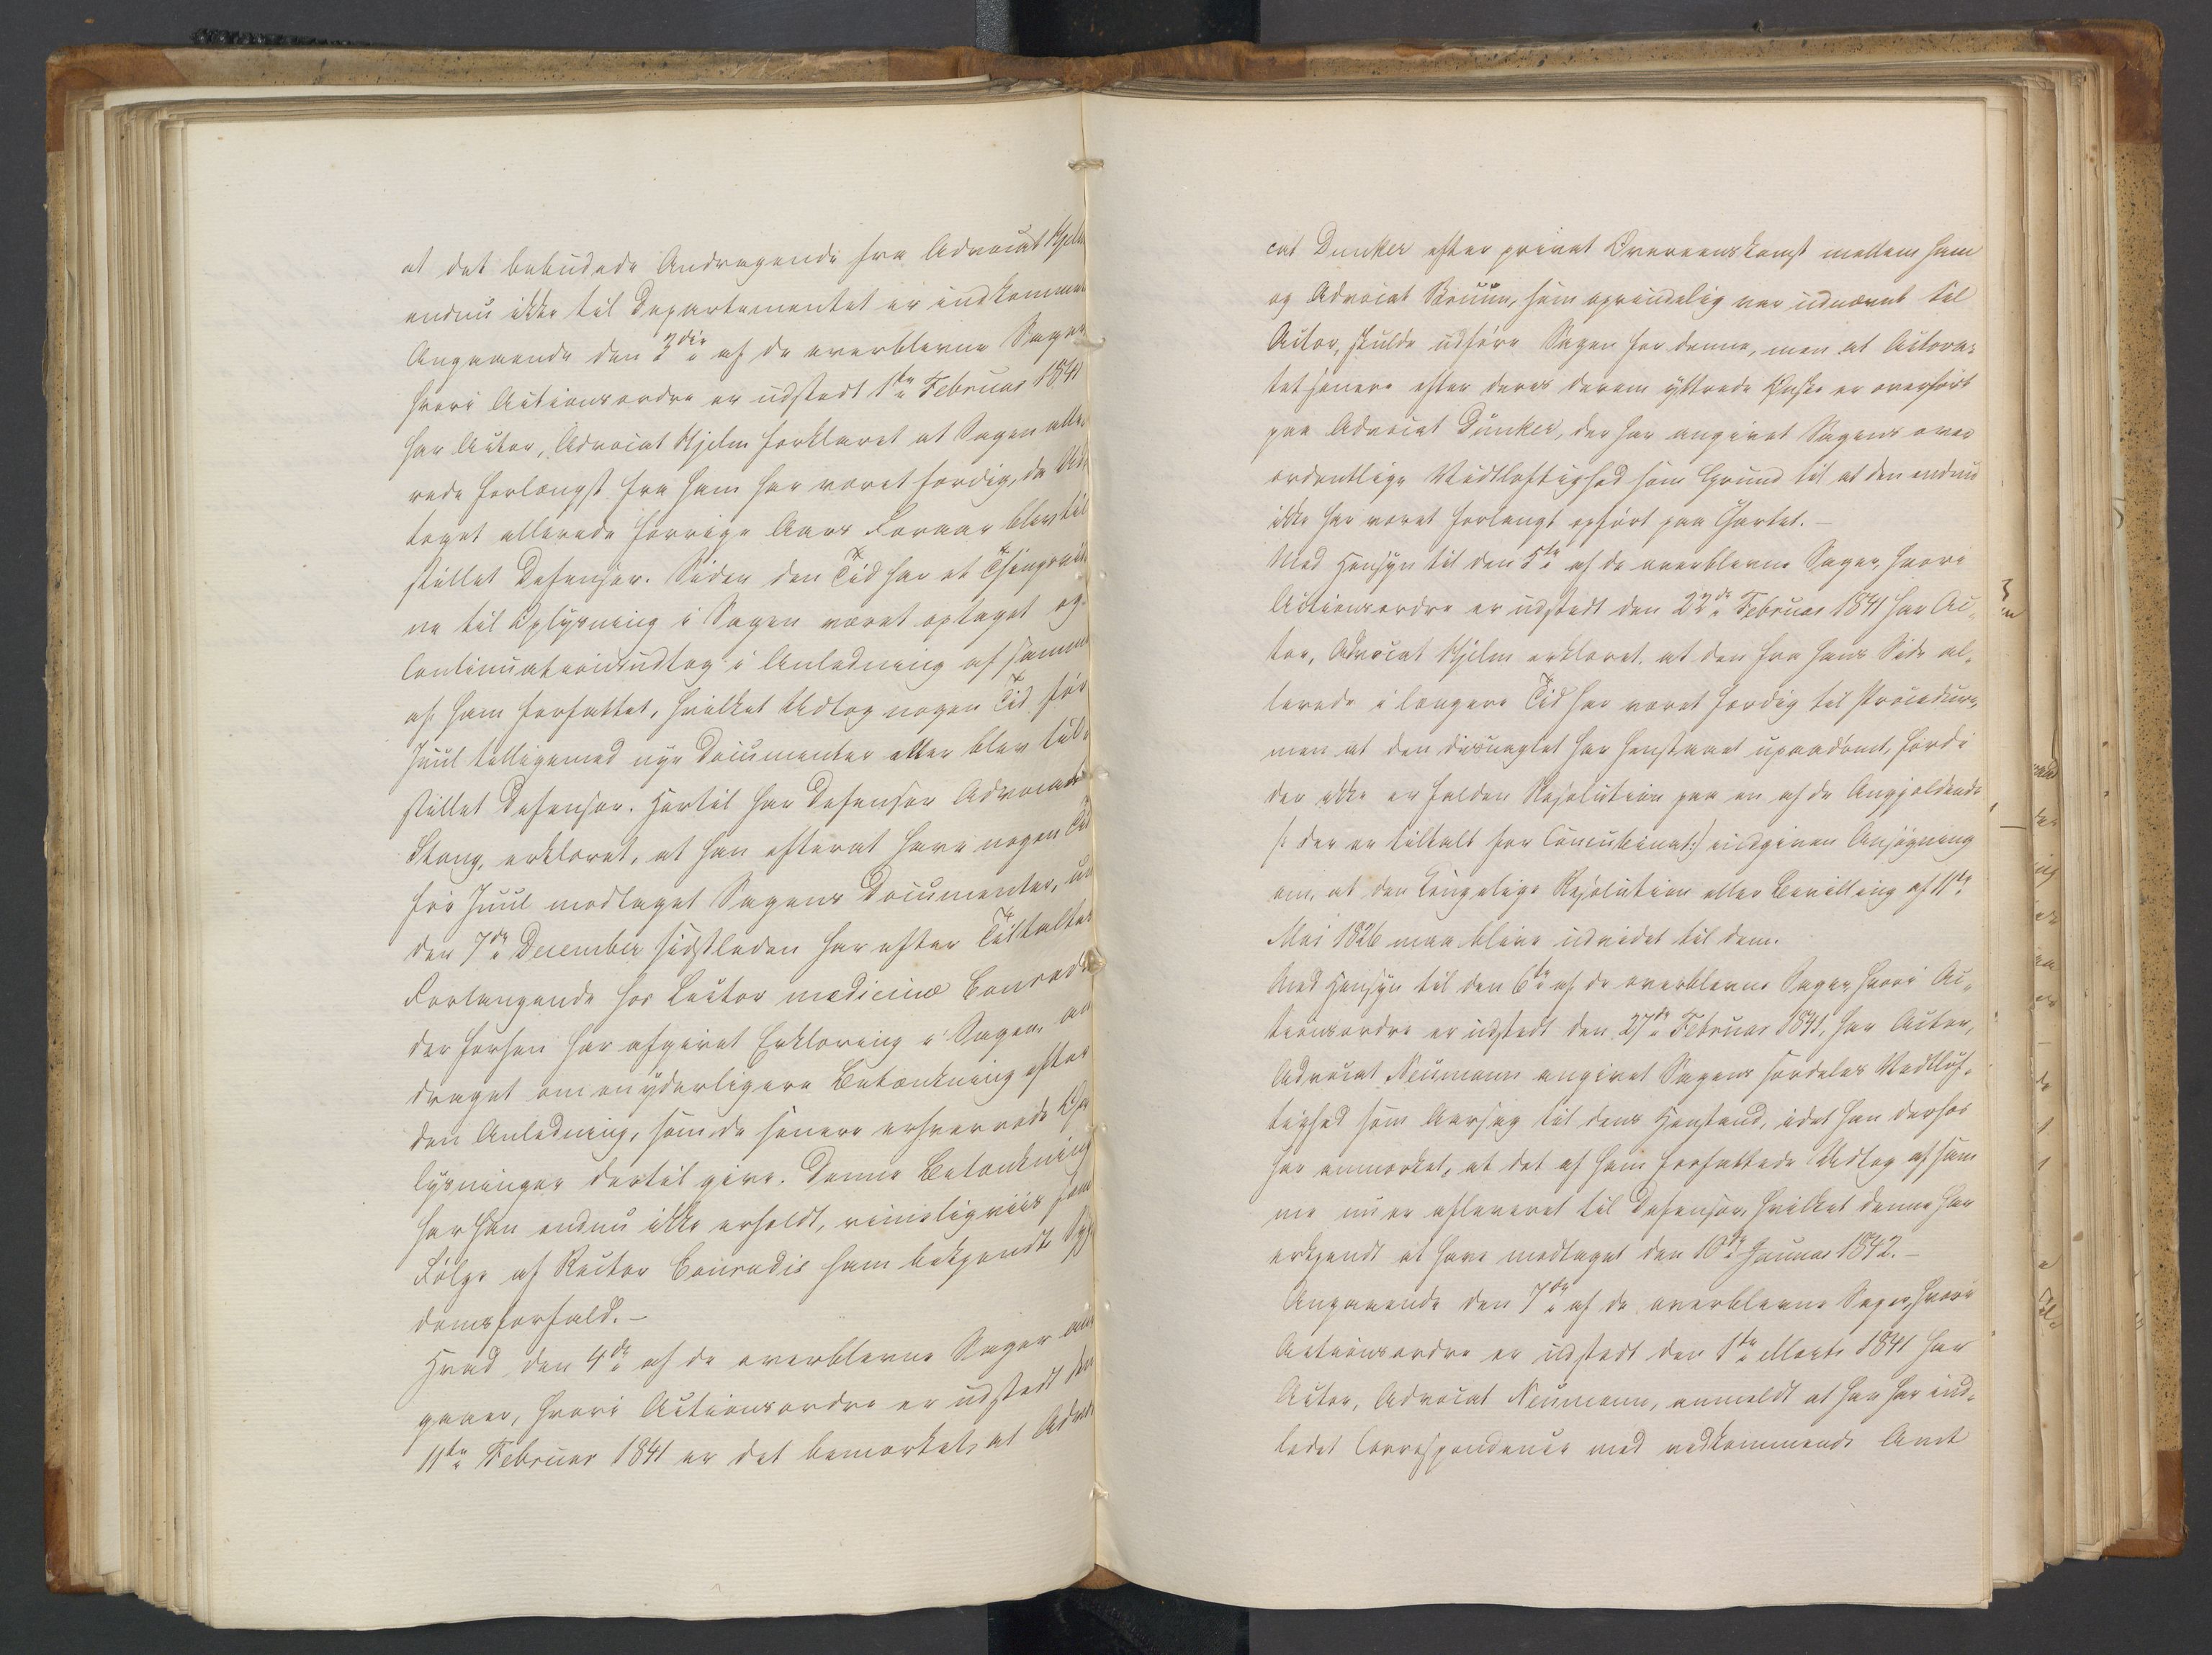 at det bebudede Andragende fra Advocat Hjelm
endnu ikke til Departementet er indkommet
Angaaende den 3die af de overblevne Sager
hvori Actionsordre er udstedt 1ste Februar 1841
har Actor, Advocat Hjelm forklaret at Sagen alle¬
rede forlængst fra ham har været færdig, da Ud¬
toget allerede forrige Aars Foraar blev til¬
stillet Defensor. Siden den Tid har et Thingsvid¬
ne til Oplysning i Sagen været optaget og
Continuationsudtog i Anledning af samme
af ham forfattet, hvilket Udtog nogen Tid før
Juul tilligemed nye Documenter atter blev til¬
stillet Defensor. Hertil har Defensor Advocat
Stang, erklæret, at han efterat have nogen Tid
før Juul modtaget Sagens Documenter, un
den 7de December sidstleden har efter Tiltaltes
Forlangende hos Lector medicinæ Conradi
der forhen har afgivet Erklæring i Sagen, an
draget om en yderligere Betænkning efter
den Anledning, som de senere erhvervede Op
lysninger dertil give. Denne Betænkning
har han endnu ikke erholdt, rimeligviis som
Følge af Rector Conradis ham bekjendte Syg
domsforfald. —
Hvad den 4de af de overblevne Sager an
gaaer, hvori Actionsordre er udstedt den
11te Februar 1841 er det bemærket, at Advo
cat Dunker efter privat Overeenskomst mellem ham
og Advocat Bruun, som oprindelig var udnævnt til
Actor, skulde udføre Sagen for denne, men at Actora¬
tet senere efter deres derom yttrede Ønske er overført
paa Advocat Dunker, der har angivet Sagens over
ordentlige Vidtløftighed som Grund til at den endnu
ikke har været forlangt opført paa Chartet. —
Med Hensyn til den 5te af de overblevne Sager, hvori
Actionsordre er udstedt den 22de Februar 1841 har Ac¬
tor, Advocat Hjelm erklæret, at den fra hans Side al¬
lerede i længere Tid har været færdig til Procedure,
men at den desuagtet har henstaaet upaadømt, fordi
der ikke er falden Resolution paa en af de Angjeldende
/: der er tiltalt for Concubinat :/ indgiven Ansøgning
om, at den Kongelige Resolution eller Bevilling af 11te
Mai 1826 maa blive udvidet til dem.
Med Hensyn til den 6te af de overblevne Sager, hvori Ac¬
tionsordre er udstedt den 27de Februar 1841, har Actor,
Advocat Neumann angivet Sagens særdeles Vidtløf¬
tighed som Aarsag til dens Henstand, idet han derhos
har anmærket, at det af ham forfattede Udtog af sam
me nu er afleveret til Defensor, hvilket denne har
erkjendt at have modtaget den 10de Januar 1842. —
Angaaende den 7de af de overblevne Sager, hvori
Actionsordre er udstedt den 1ste Marts 1841 har
Actor, Advocat Neumann, anmeldt at han har ind¬
ledet Correspondence med vedkommende Amt